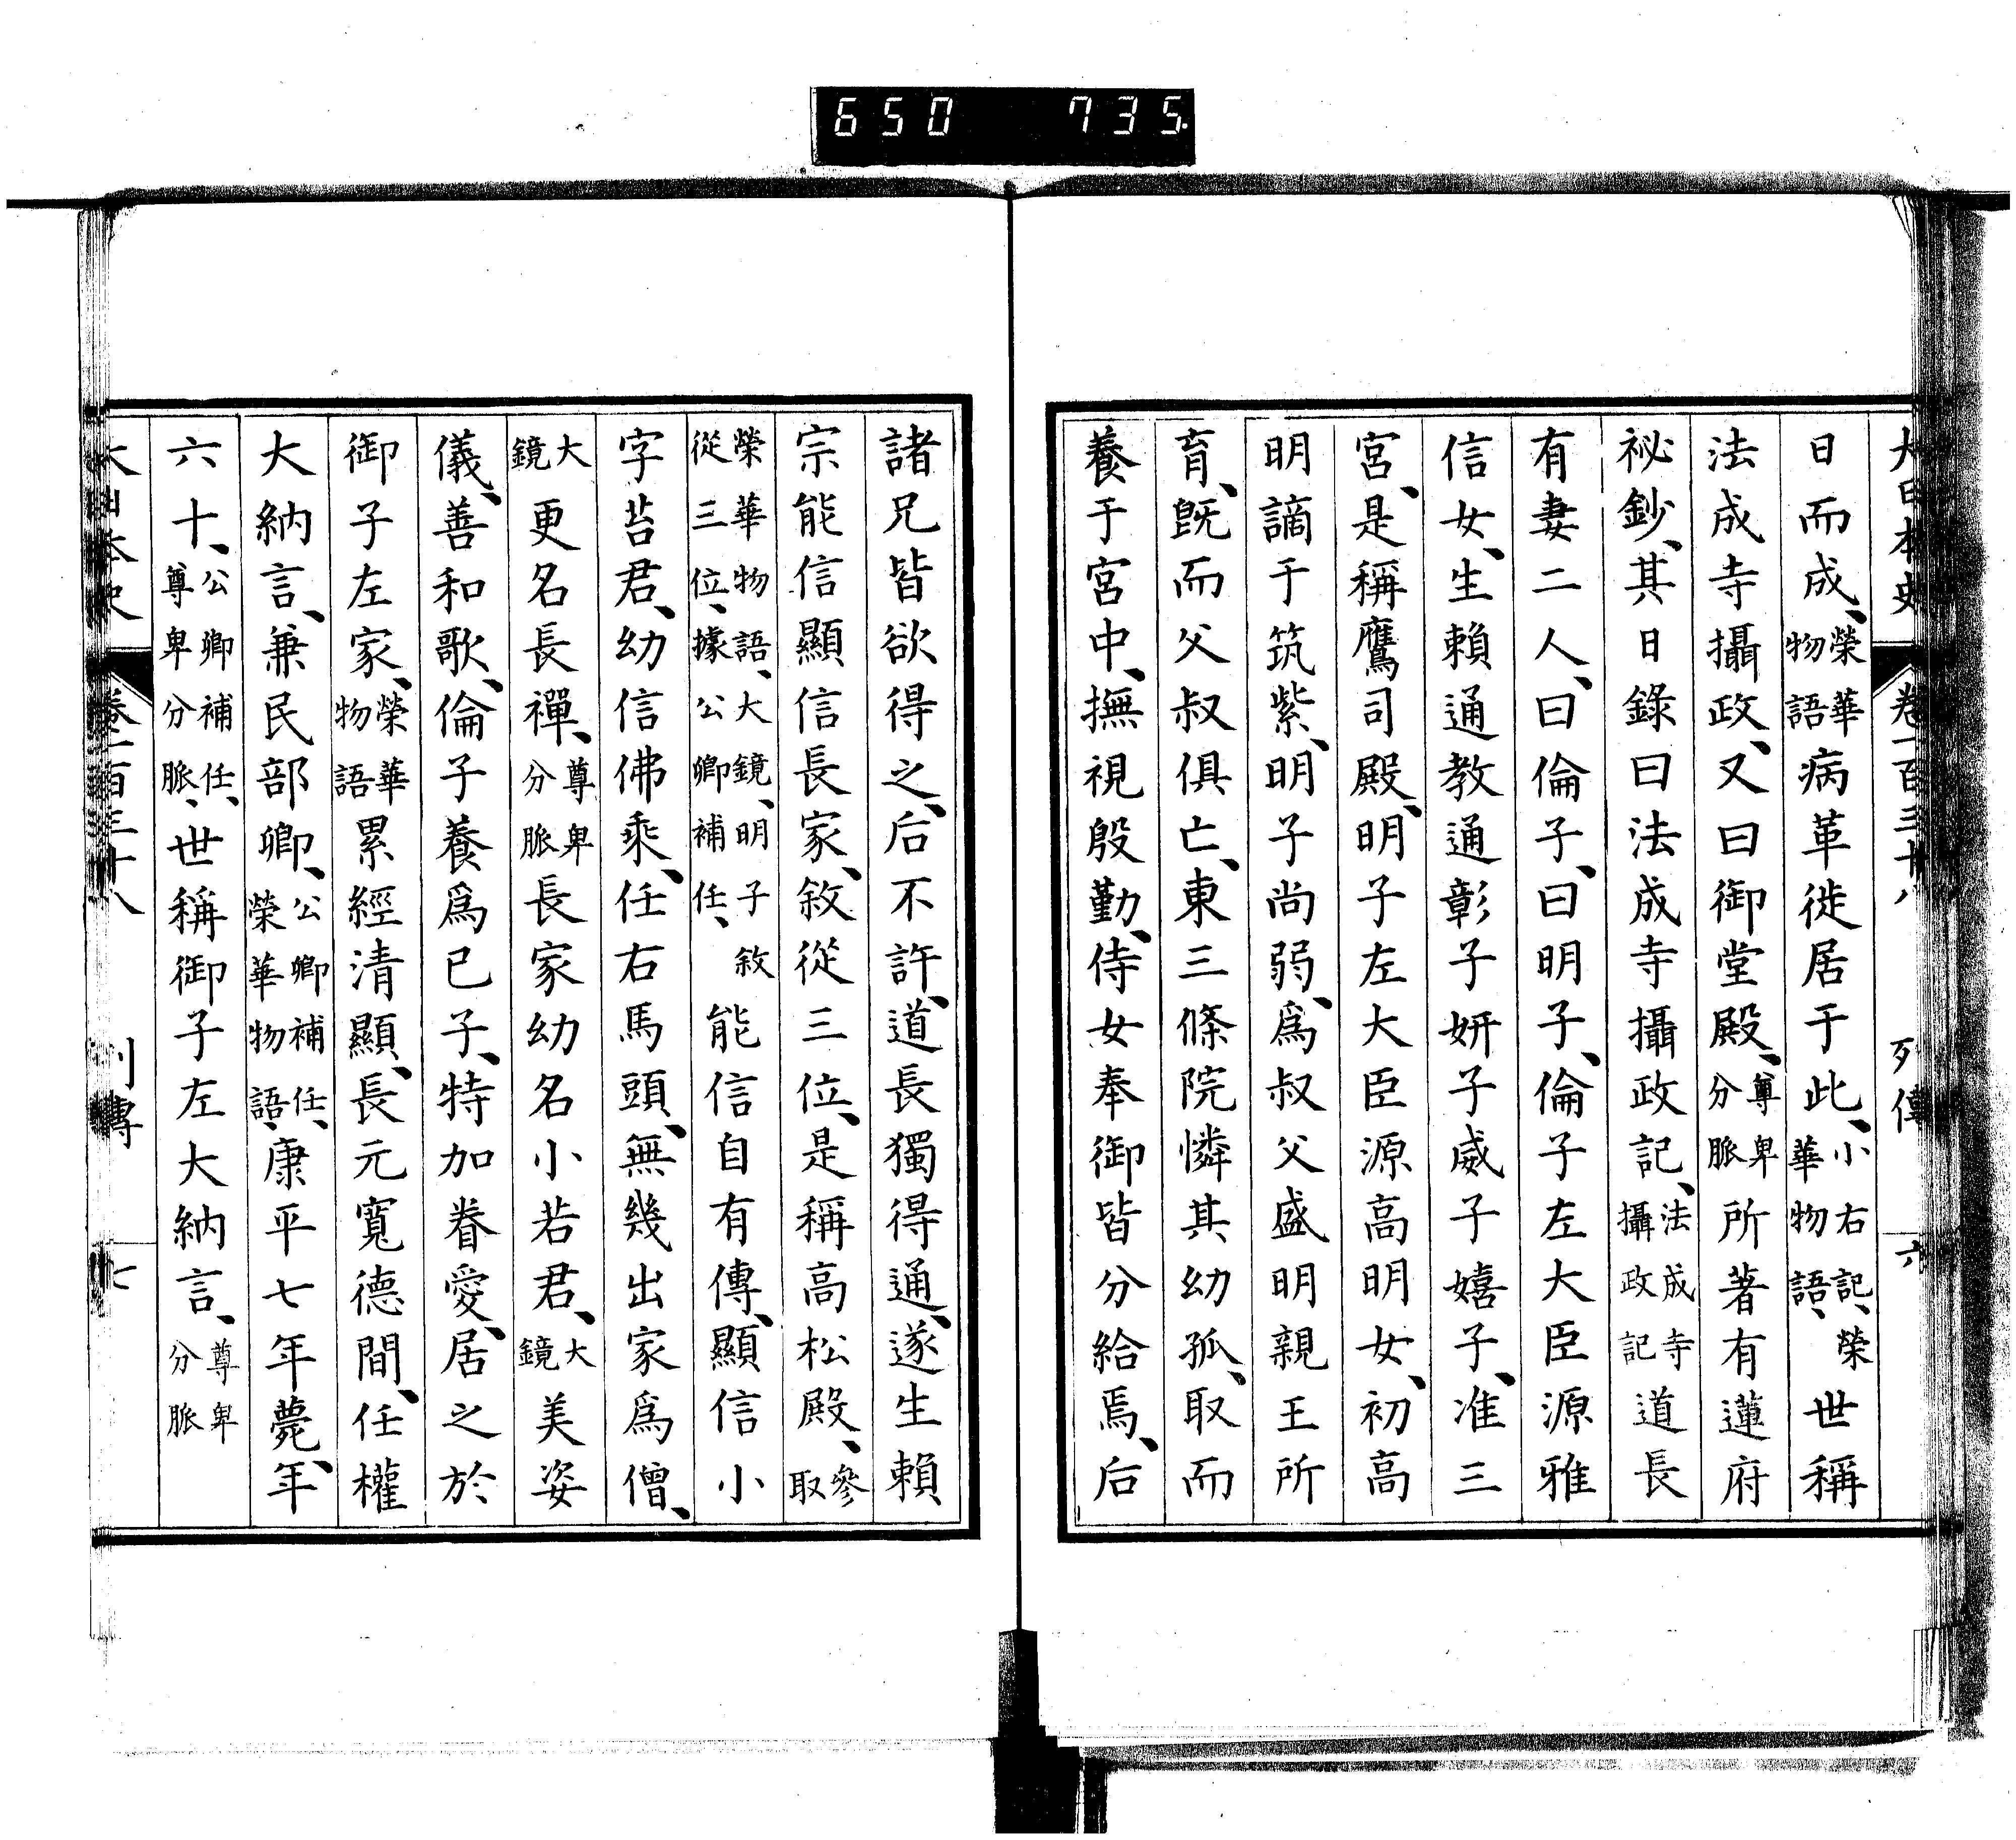 650 735
大日本史 卷一百三十八 列傳 六
日而成、榮華物語病革徙居于此、小右記、榮華物語、世稱
法成寺攝政、又曰御堂殿、尊卑分脈所著有蓮府
祕鈔、其日錄曰法成寺攝政記、法成寺攝政記道長
有妻二人、曰倫子、曰明子、倫子左大臣源雅
信女、生賴通教通彰子妍子威子嬉子、准三
宮、是稱鷹司殿、明子左大臣源高明女、初高
明謫于筑紫、明子尚弱、爲叔父盛明親王所
育、旣而父叔俱亡、東三條院憐其幼孤、取而
養于宮中、撫視殷勤、侍女奉御皆分給焉、后
諸兄皆欲得之、后不許、道長獨得通、遂生賴
宗能信顯信長家、敘從三位、是稱高松殿、參取
榮華物語、大鏡、明子敘從三位、據公卿補任、能信自有傳、顯信小
字苔君、幼信佛乘、任右馬頭、無幾出家爲僧、
大鏡更名長禪、尊卑分脈長家幼名小若君、大鏡美姿
儀、善和歌、倫子養爲已子、特加眷愛、居之於
御子左家、榮華物語累經清顯、長元寬德間、任權
大納言、兼民部卿、公卿補任、榮華物語、康平七年薨、年
六十、公卿補任、尊卑分脈、世稱御子左大納言、尊卑分脈
大日本史 卷一百三十八 列傳 七